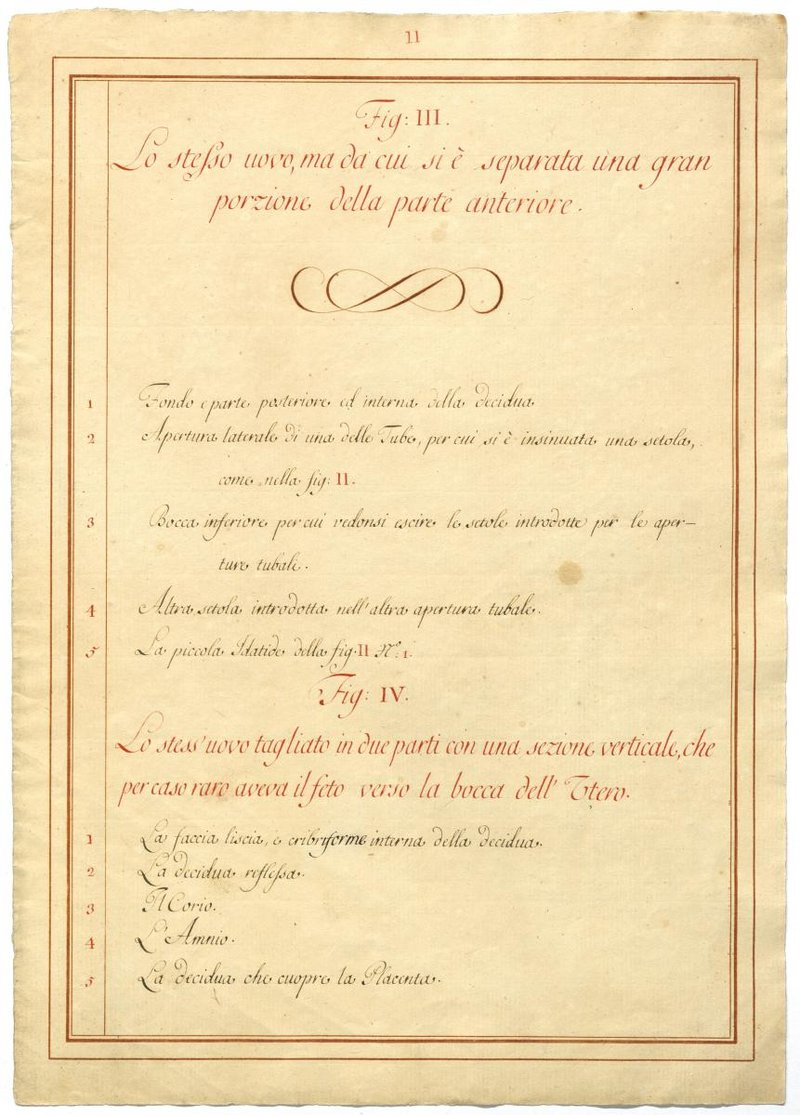 11
Fig: III.
Lo stesso uovo, ma da cui si è separata una gran
porzione della parte anteriore.
1 Fondo e parte posteriore ed interna della decidua
2 Apertura laterale di una delle Tube, per cui si è insinuata una setola,
come nella fig: II.
3 Bocca inferiore per cui vedonsi escire le setole introdotte per le aper-
ture tubali.
4 Altra setola introdotta nell'altra apertura tubale.
5 La piccola Idatide della fig. II Nº: 1.
Fig: IV.
Lo stess'uovo tagliato in due parti con una sezione verticale, che
per caso raro aveva il feto verso la bocca dell' Utero.
1 La faccia liscia, e cribriforme interna della decidua.
2 La decidua reflessa.
3 Il Corio.
4 L'Amnio.
5 La decidua che cuopre la Placenta.